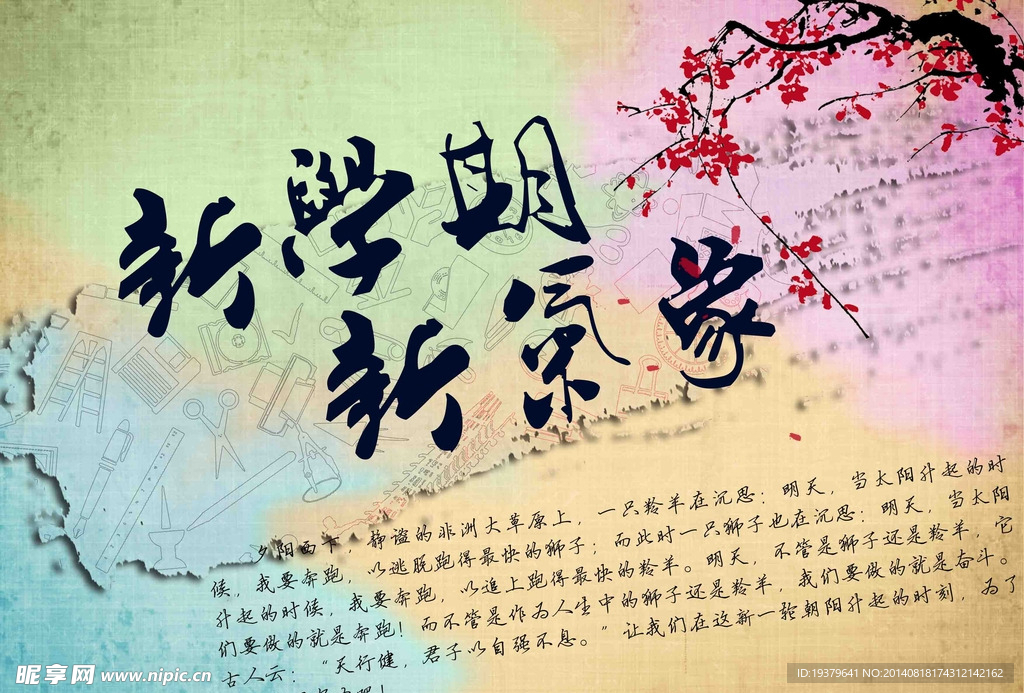 新學期
新氣象
夕阳西下，静谧的非洲大草原上，一只羚羊在沉思：明天，当太阳升起的时
候，我要奔跑，以逃脱跑得最快的狮子；而此时一只狮子也在沉思：明天，当太阳
升起的时候，我要奔跑，以追上跑得最快的羚羊。明天，不管是狮子还是羚羊，它
们要做的就是奔跑！而不管是作为人生中的狮子还是羚羊，我们要做的就是奋斗。
古人云：“天行健，君子以自强不息。”让我们在这新一轮朝阳升起的时刻，为了
吧！
昵享网 www.nipic.cn
ID:19379641 NO:20140818174312142162